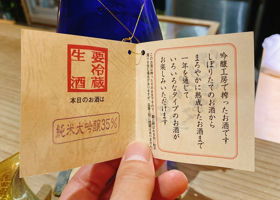 要冷蔵
生酒
本日のお酒は
純米大吟醸35%
吟醸工房で搾ったお酒です
しぼりたてのお酒から
まろやかに熟成したお酒まで
一年を通じて
いろいろなタイプのお酒が
お楽しみいただけます